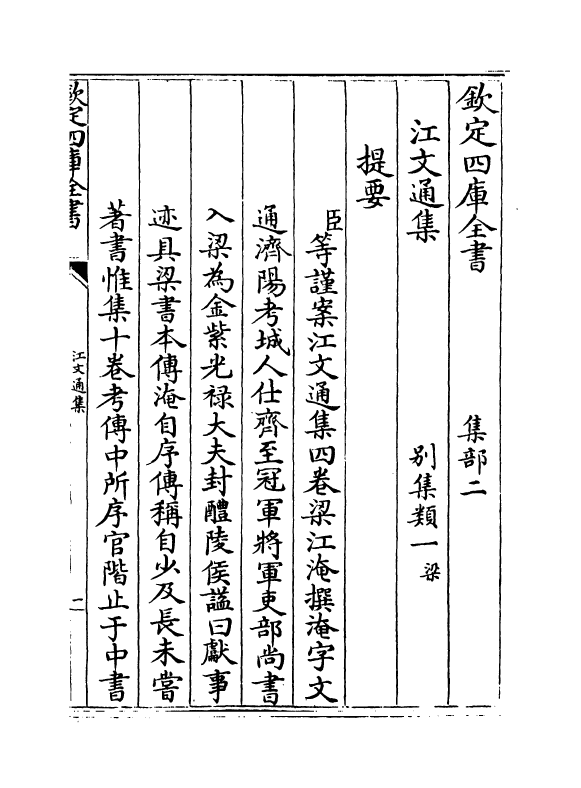 欽定四庫全書 集部二
江文通集 別集類一 梁
提要
臣等謹案江文通集四卷梁江淹撰淹字文
通濟陽考城人仕齊至冠軍將軍吏部尚書
入梁為金紫光禄大夫封醴陵侯諡曰獻事
迹具梁書本傳淹自序傳稱自少及長未嘗
著書惟集十卷考傳中所序官階止于中書
欽定四庫全書
江文通集
二